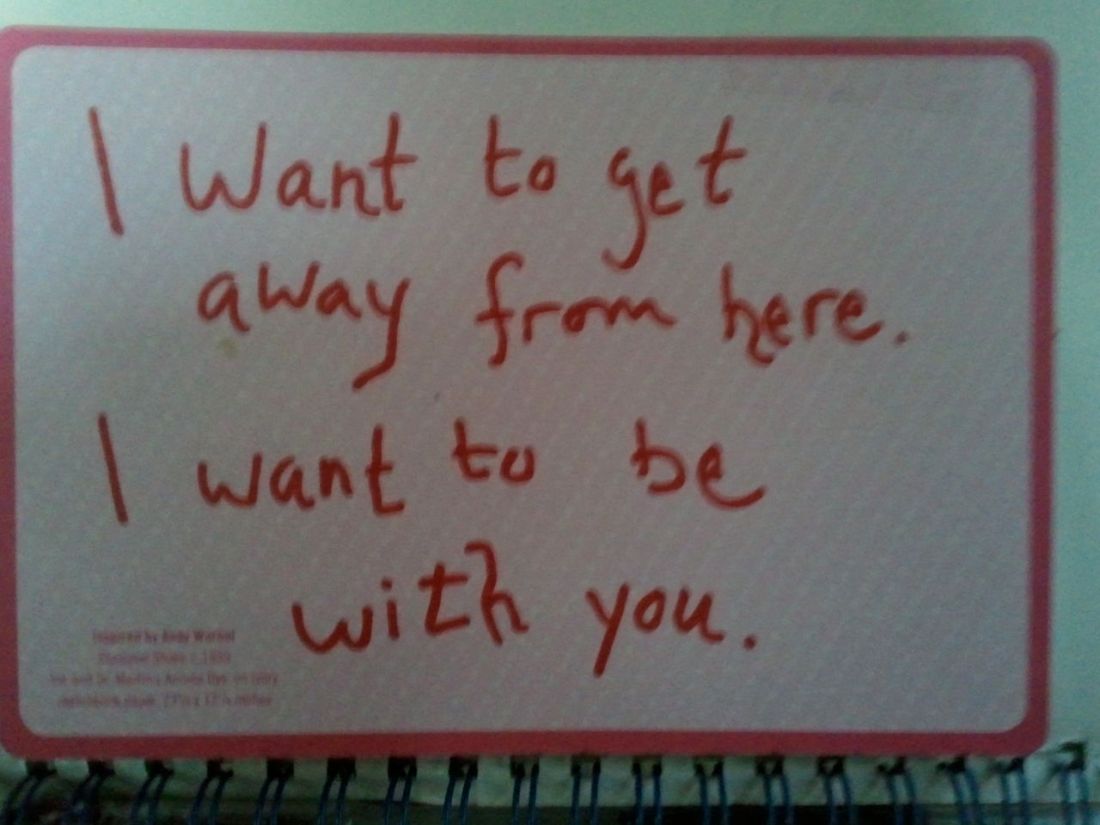 I want to get
away from here.
I want to be
with you.
Inspired by Andy Warhol